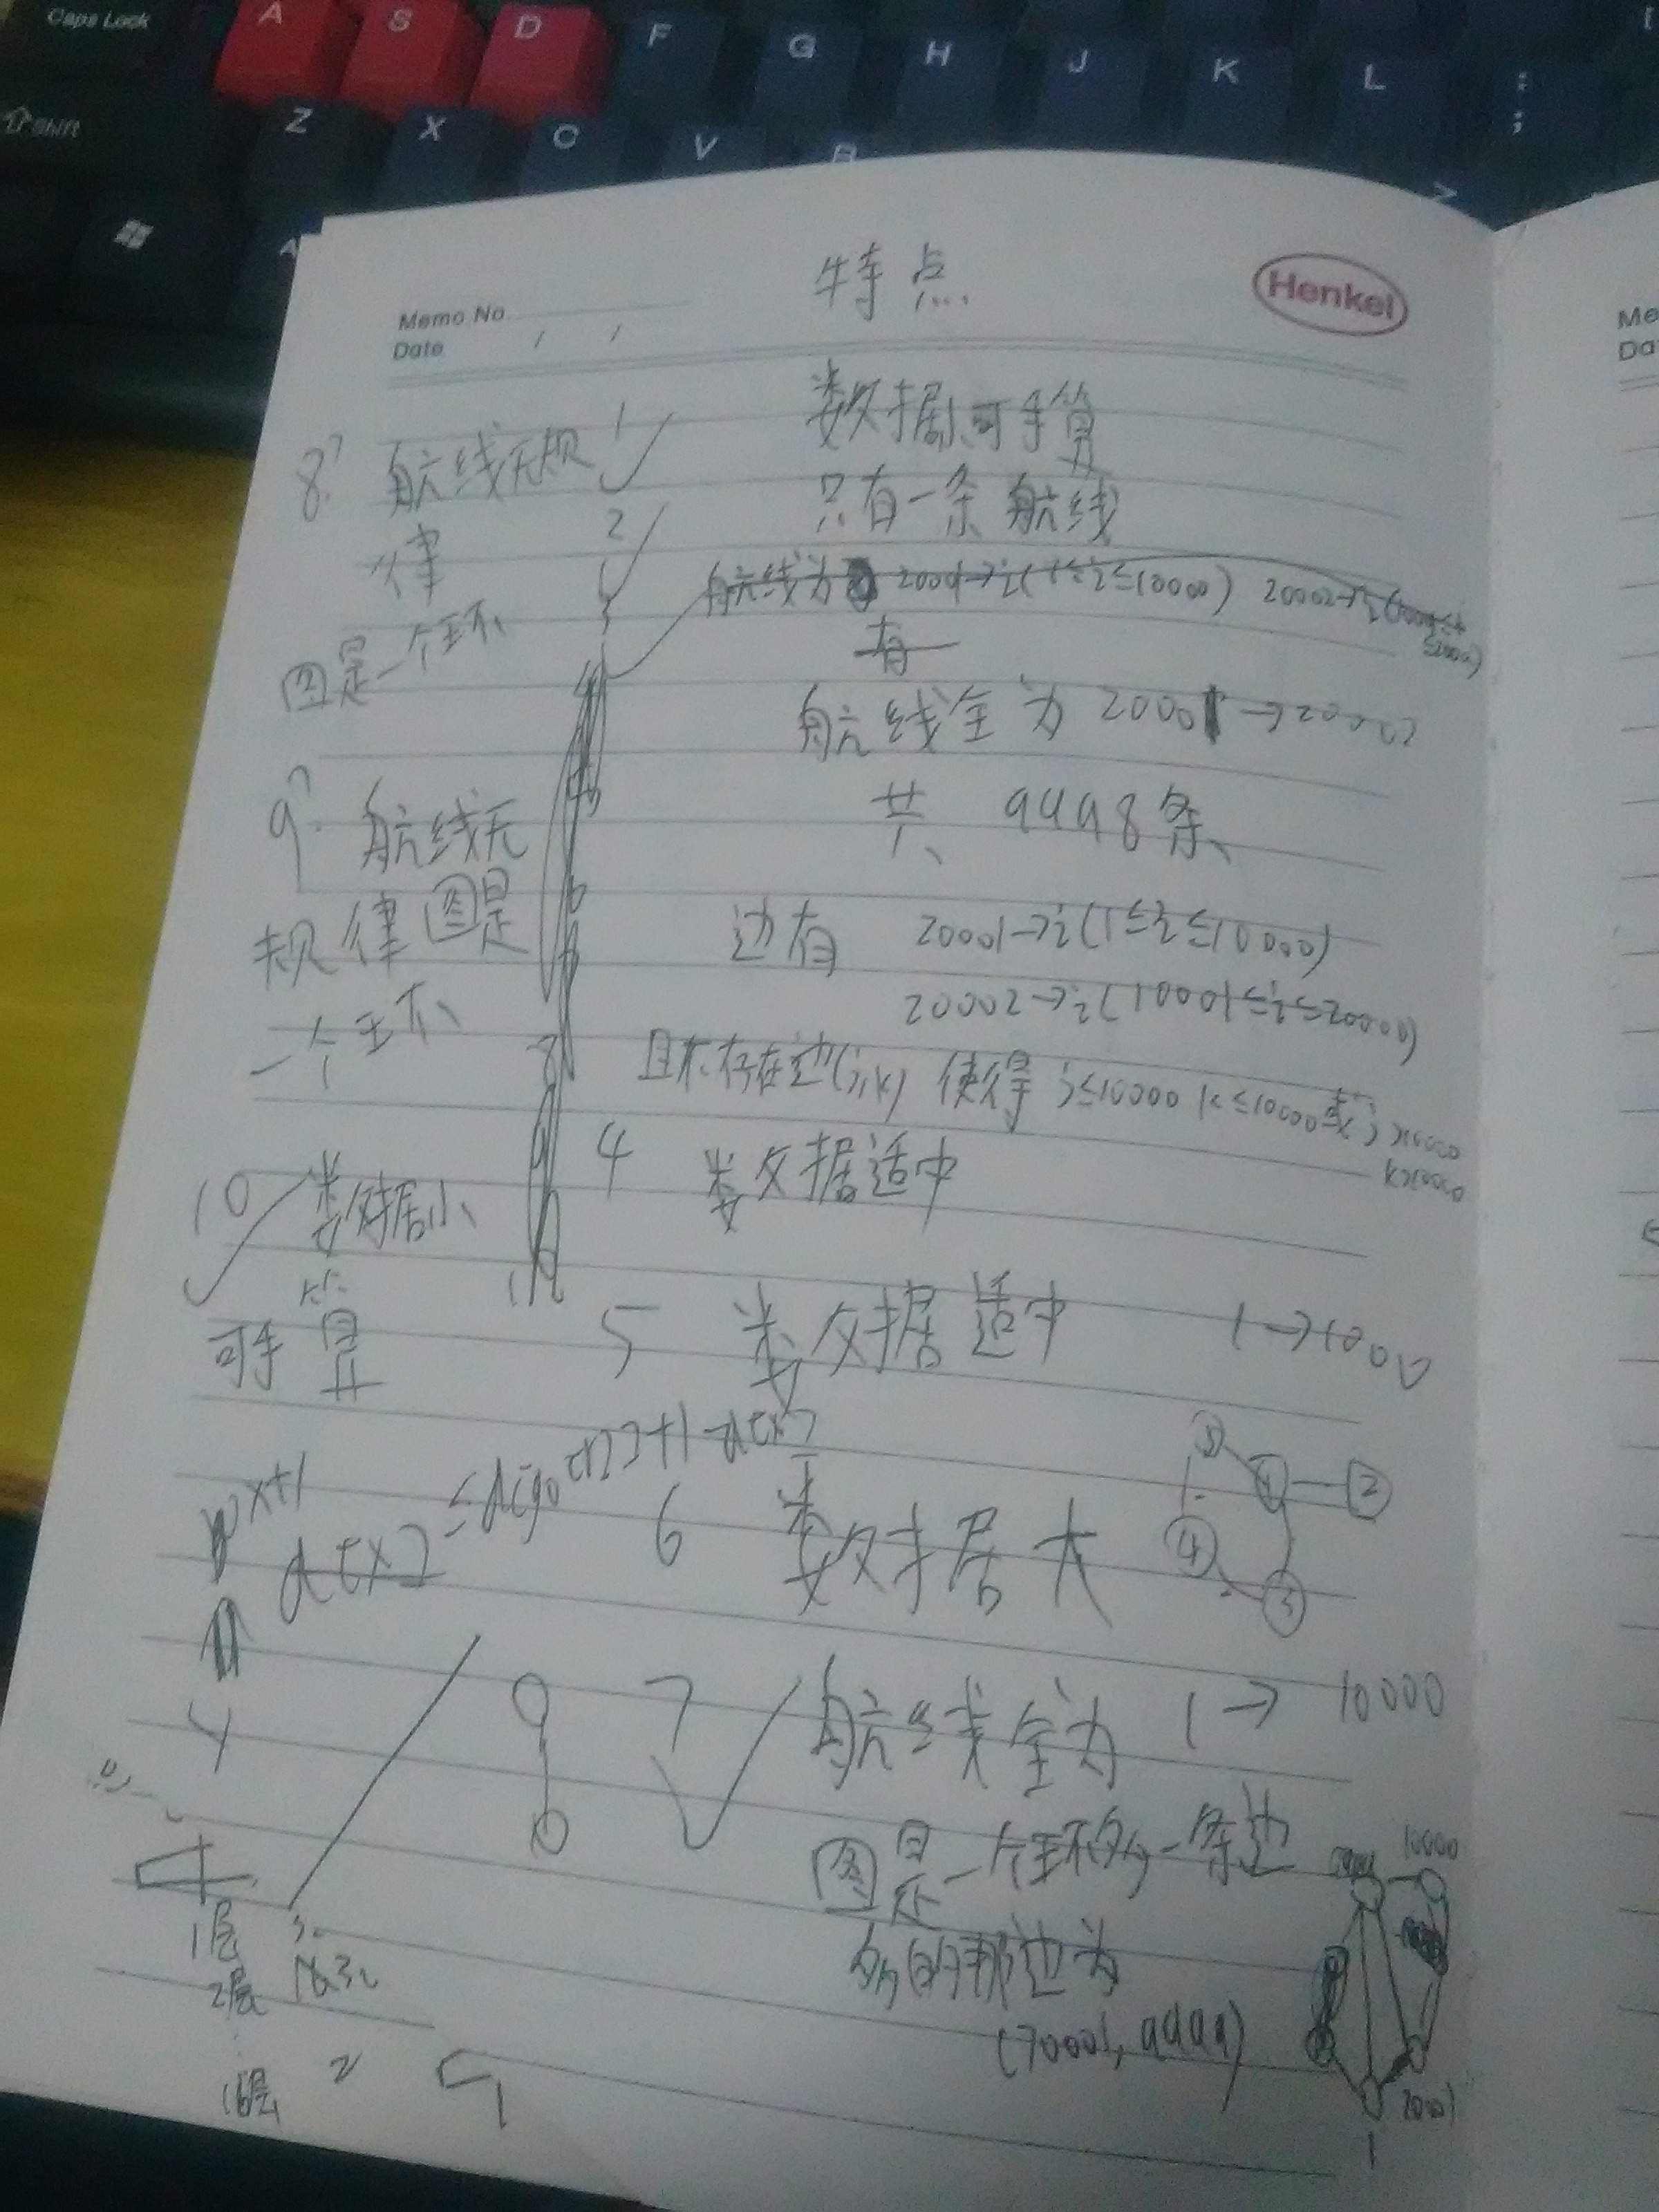 Caps Lock
A
S
D
F
G
H
J
K
L
:
;
Shift
Z
X
C
V
B
特点
Henkel
Memo No
Date / /
1 数据可手算
2 只有一条航线
航线为 20001→i(1≤i≤10000) 20002→i
有
3 航线全为 20001→20002
共 9998条
边有 20001→i(1≤i≤10000)
20002→i(10001≤i≤20000)
且不存在边(j,k) 使得 j≤10000 k≤10000或j>10000
k>10000
4 数据适中
5 数据适中 1→1000
6 数据大
7 航线全为 1→10000
图是一个环多一条边
多的那边为
(70001, 9999)
8? 航线无规
律
图是一个环
9? 航线无
规律图是
一个环
10 数据小
可手算
x+1
d[x]
1层
2层
16层
2
10000
1
2
3
4
Me
Da